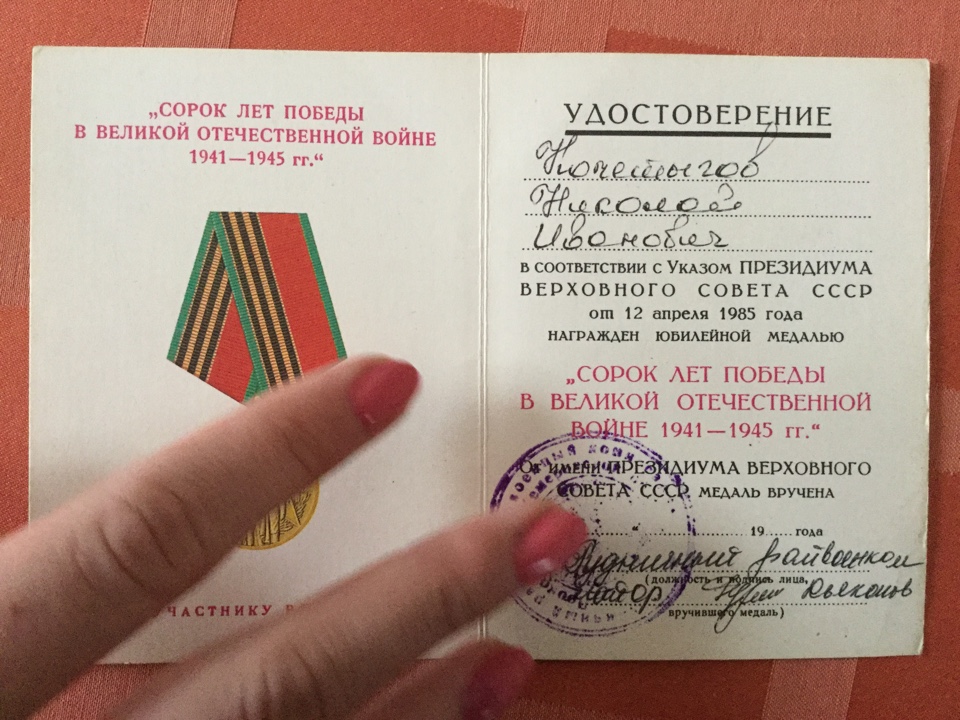 „СОРОК ЛЕТ ПОБЕДЫ
В ВЕЛИКОЙ ОТЕЧЕСТВЕННОЙ ВОЙНЕ
1941—1945 гг.“
УДОСТОВЕРЕНИЕ
Кочетыгов
Николай
Иванович
В СООТВЕТСТВИИ С УКАЗОМ ПРЕЗИДИУМА
ВЕРХОВНОГО СОВЕТА СССР
от 12 апреля 1985 года
НАГРАЖДЕН ЮБИЛЕЙНОЙ МЕДАЛЬЮ
„СОРОК ЛЕТ ПОБЕДЫ
В ВЕЛИКОЙ ОТЕЧЕСТВЕННОЙ
ВОЙНЕ 1941—1945 гг.“
ОТ ИМЕНИ ПРЕЗИДИУМА ВЕРХОВНОГО
СОВЕТА СССР МЕДАЛЬ ВРУЧЕНА
“ 19 года
райвоенком
(должность и подпись лица,
майор Дьяконов
вручившего медаль)